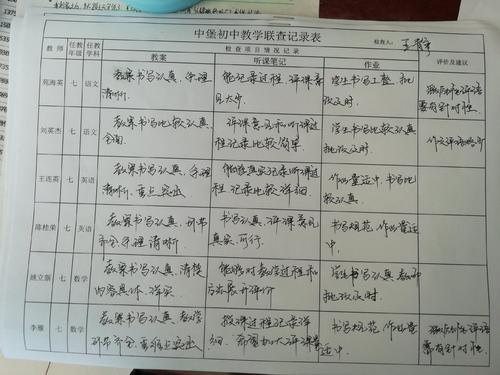 中堡初中教学联查记录表
检查人:
教师 任教年级 任教学科 检查项目情况记录 评价及建议
教案 听课笔记 作业
苑海英 七 语文
教案书写认真、条理清晰。
能记录过程,评课意见太少
学生书写工整,批改及时。
刘英杰 七 语文
教案书写比较认真、全面。
评课意见和听课过程记录比较简单
学生书写比较认真批改及时。
王连英 七 英语
教案书写认真、条理清晰、重点突出
能够真实记录听课过程,记录比较详细
作业量适中,书写比较认真。
陈桂荣 七 英语
教案书写认真、环节齐全、条理清晰
书写认真、评课意见真实、可行。
书写规范,作业量适中。
姚立新 七 数学
教案书写认真、清楚内容具体、详实
能够对教学过程和内容展开评价
学生书写认真教师批改及时。
李雅 七 数学
教案书写认真、教学环节齐全、重难点突出
授课过程记录详细、希望加大评课量
书写规范、作业量适中
要有针对性